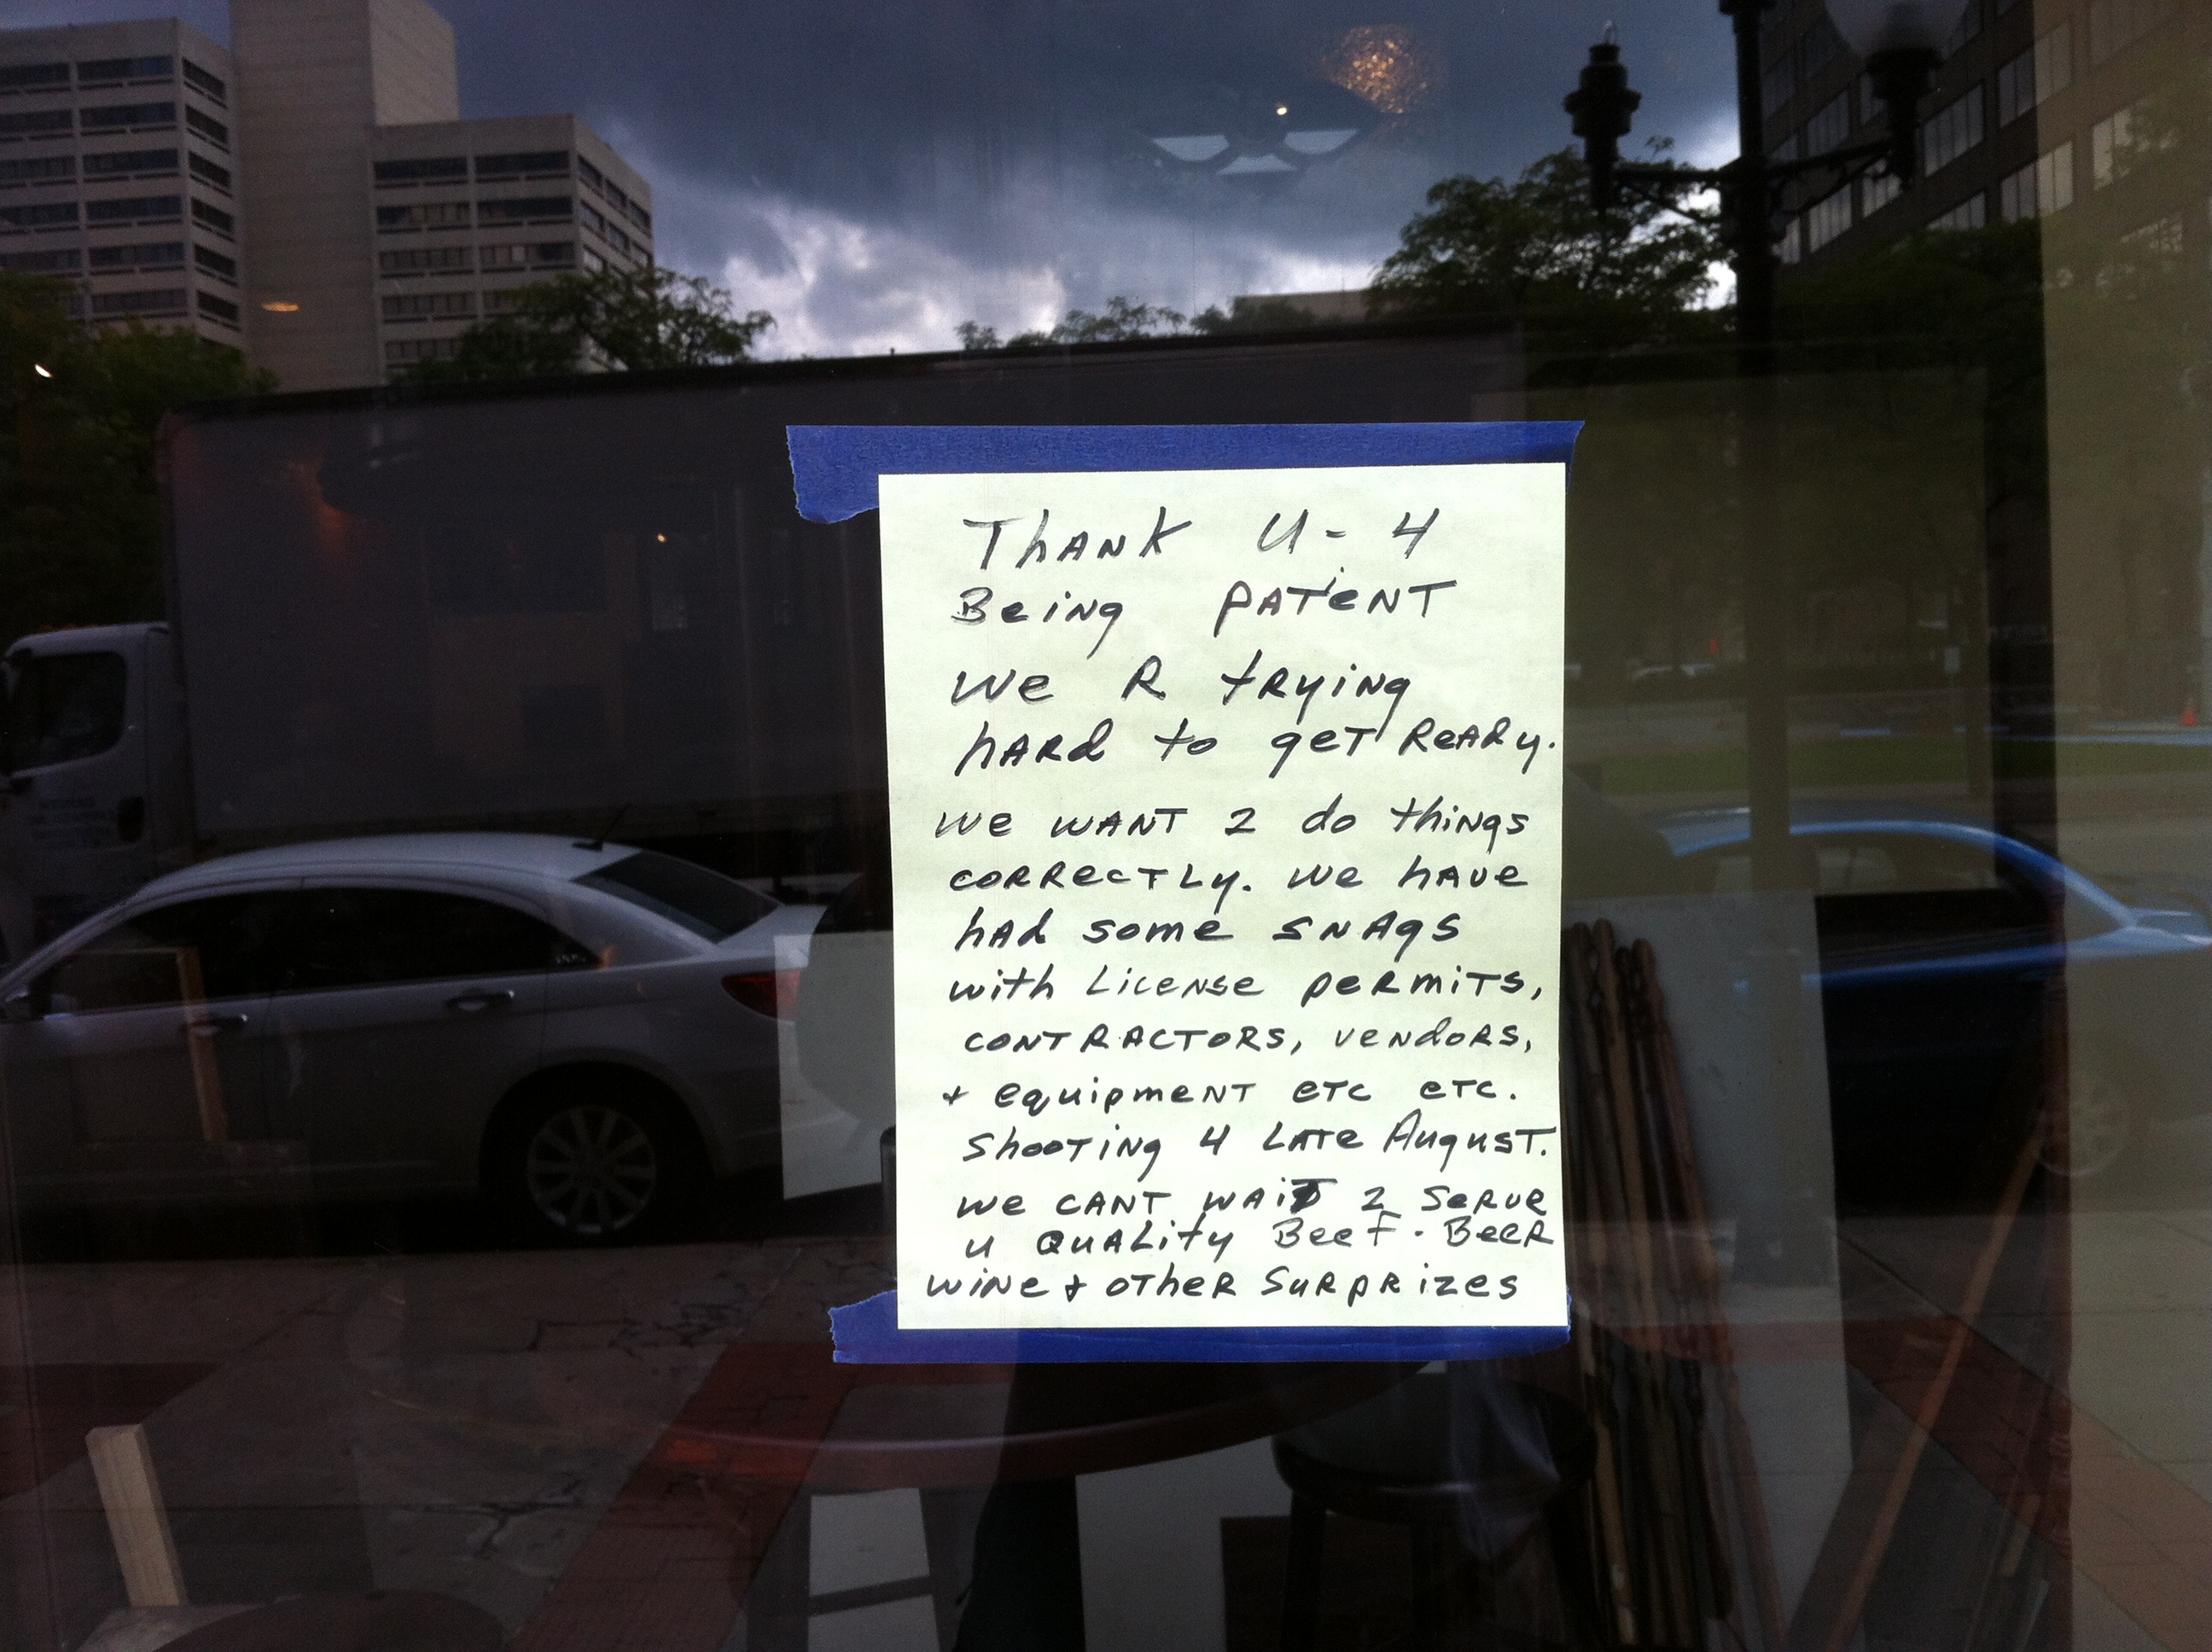 Thank U - 4
Being patient
We R trying
hard to get ready.
We want 2 do things
correctly. We have
had some snags
with License permits,
contractors, vendors,
+ equipment etc etc.
Shooting 4 Late August.
We cant wait 2 serve
u Quality Beef - Beer
wine + other Surprizes